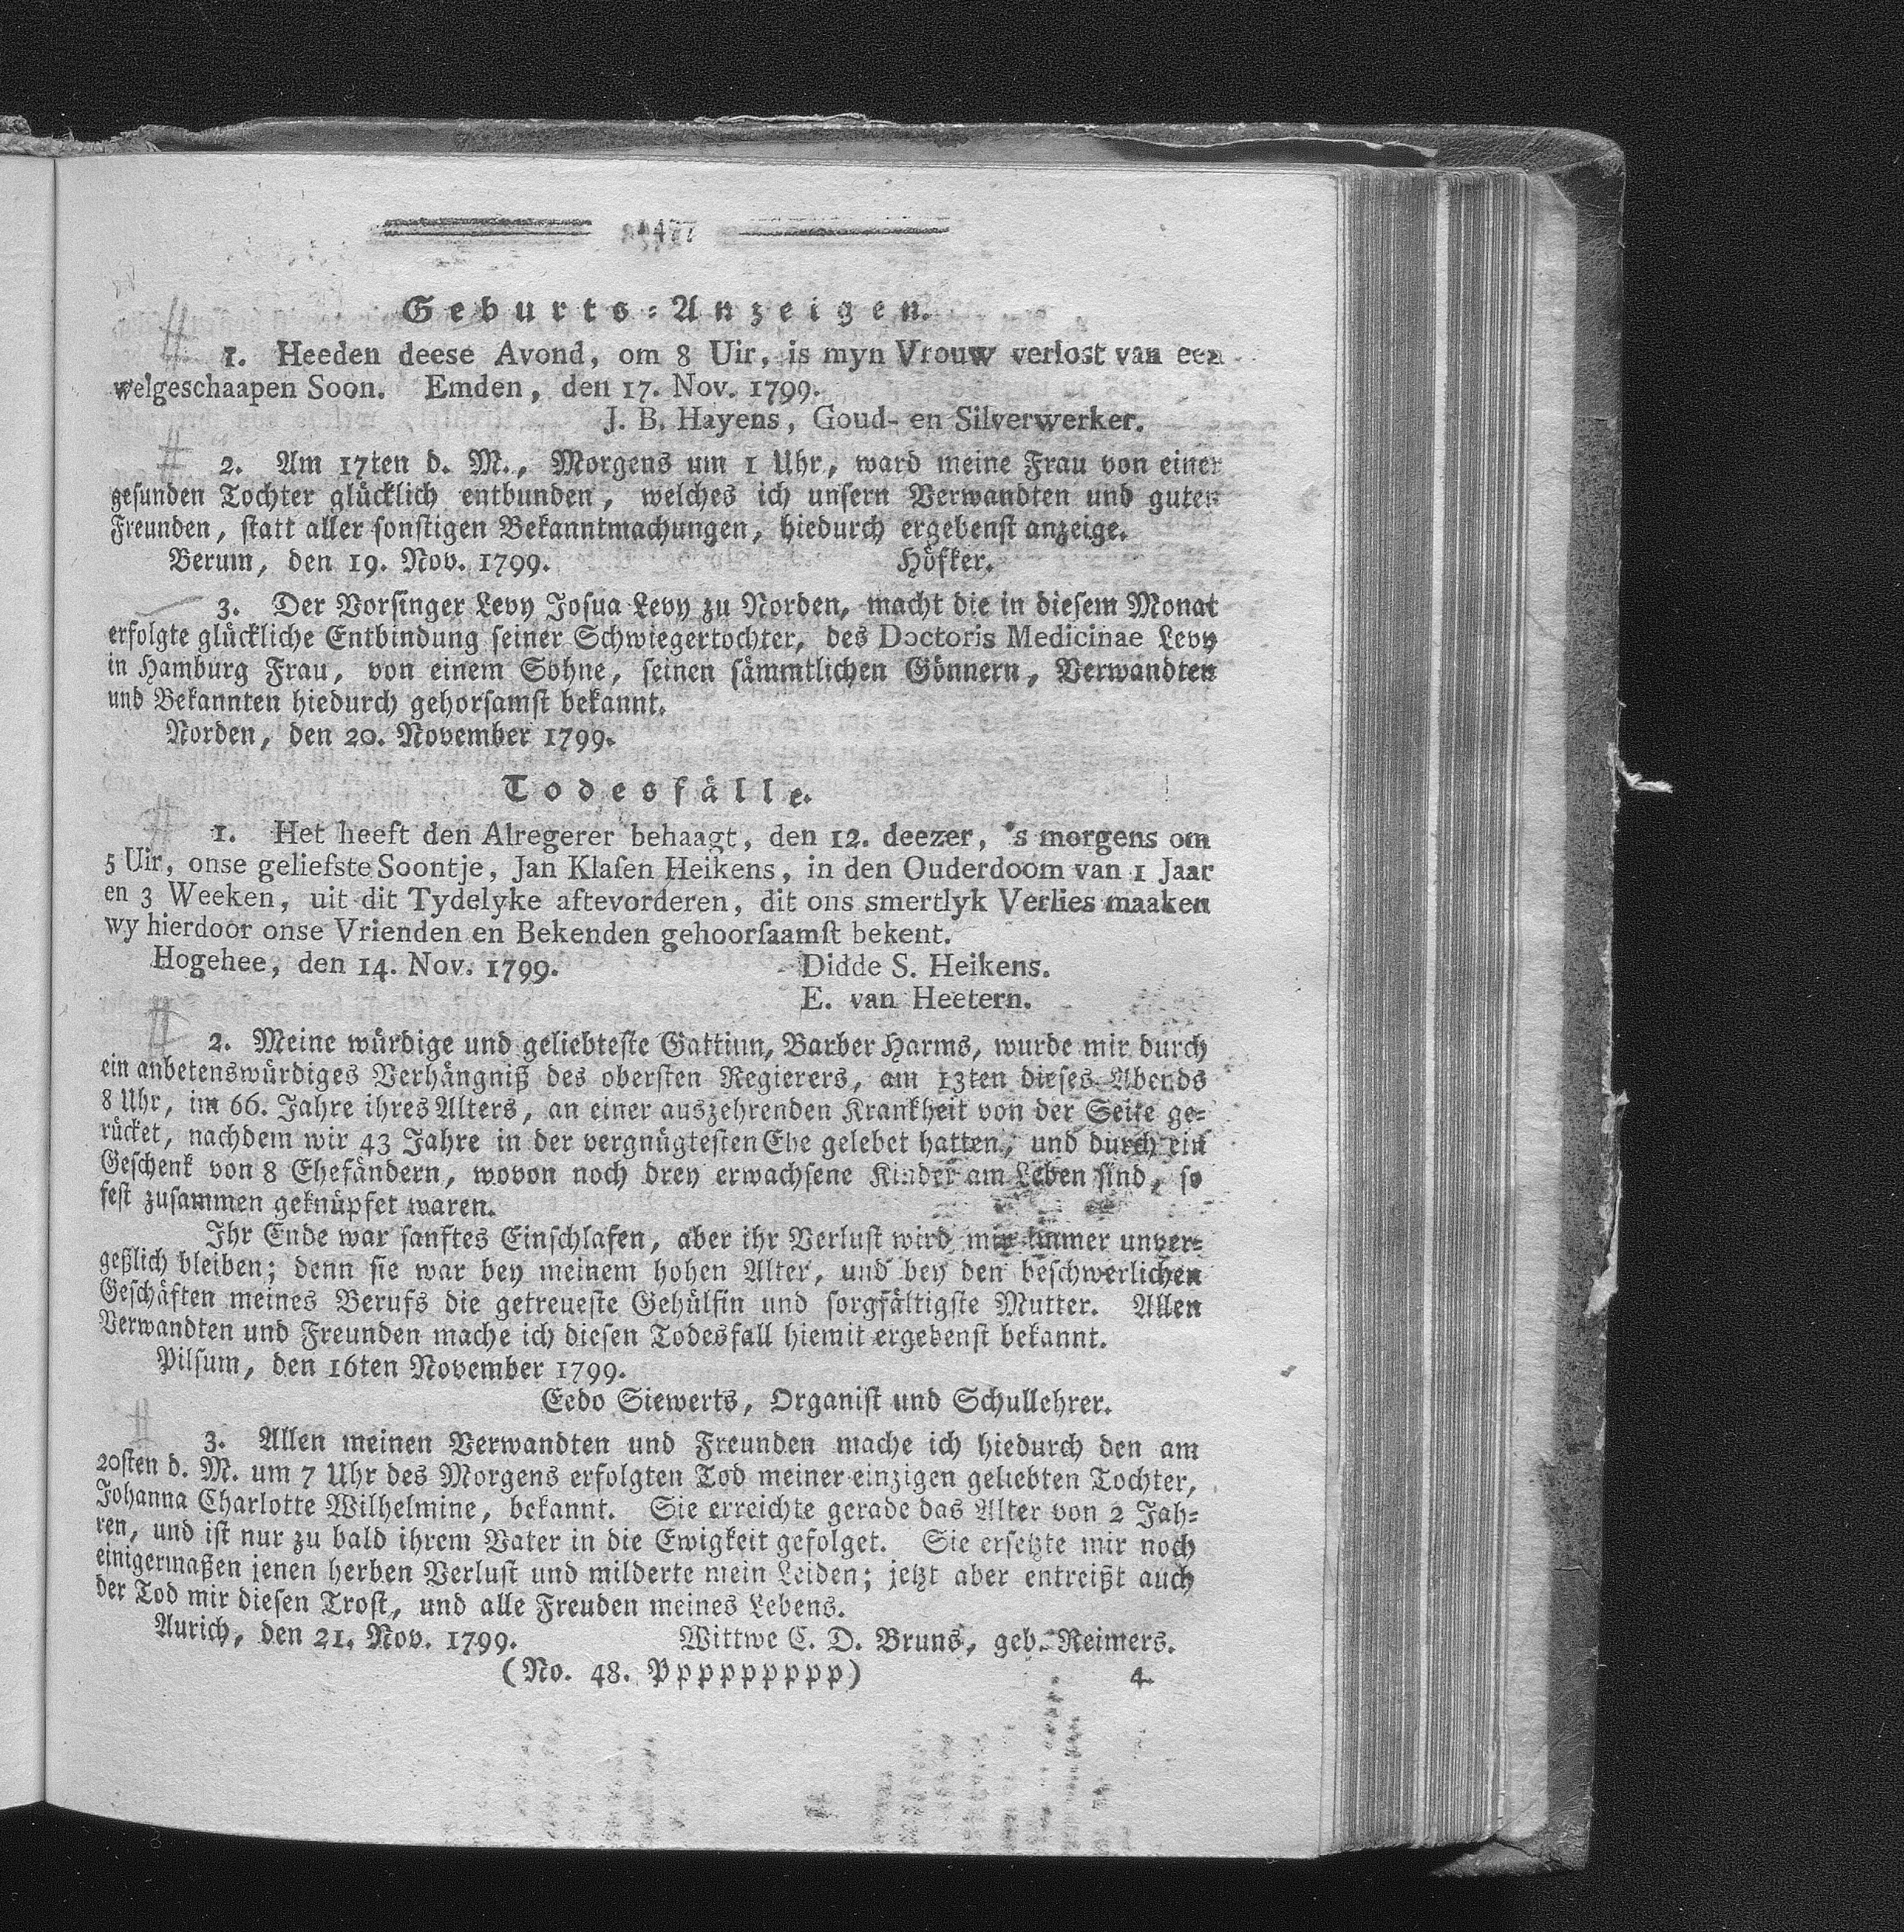 Geburts-Anzeigen.
1. Heeden deese Avond, om 8 Uir, is myn Vrouw verlost van een
welgeschaapen Soon. Emden, den 17. Nov. 1799.
J. B. Hayens, Goud- en Silverwerker.
2. Am 17ten d. M., Morgens um 1 Uhr, ward meine Frau von einer
gesunden Tochter glücklich entbunden, welches ich unsern Verwandten und guten
Freunden, statt aller sonstigen Bekanntmachungen, hiedurch ergebenst anzeige.
Berum, den 19. Nov. 1799. Höfker.
3. Der Vorsinger Levy Josua Levy zu Norden, macht die in diesem Monat
erfolgte glückliche Entbindung seiner Schwiegertochter, des Doctoris Medicinae Levy
in Hamburg Frau, von einem Sohne, seinen sämmtlichen Gönnern, Verwandten
und Bekannten hiedurch gehorsamst bekannt.
Norden, den 20. November 1799.
Todesfälle.
1. Het heeft den Alregerer behaagt, den 12. deezer, 's morgens om
5 Uir, onse geliefste Soontje, Jan Klasen Heikens, in den Ouderdoom van 1 Jaar
en 3 Weeken, uit dit Tydelyke aftevorderen, dit ons smertlyk Verlies maaken
wy hierdoor onse Vrienden en Bekenden gehoorsaamst bekent.
Hogehee, den 14. Nov. 1799. Didde S. Heikens.
E. van Heetern.
2. Meine würdige und geliebteste Gattinn, Barber Harms, wurde mir durch
ein anbetenswürdiges Verhängniß des obersten Regierers, am 13ten dieses Abends
8 Uhr, im 66. Jahre ihres Alters, an einer auszehrenden Krankheit von der Seite ge-
rücket, nachdem wir 43 Jahre in der vergnügtesten Ehe gelebet hatten, und durch ein
Geschenk von 8 Ehefändern, wovon noch drey erwachsene Kinder am Leben sind, so
fest zusammen geknüpfet waren.
Ihr Ende war sanftes Einschlafen, aber ihr Verlust wird mir immer unver-
geßlich bleiben; denn sie war bey meinem hohen Alter, und bey den beschwerlichen
Geschäften meines Berufs die getreueste Gehülfin und sorgfältigste Mutter. Allen
Verwandten und Freunden mache ich diesen Todesfall hiemit ergebenst bekannt.
Pilsum, den 16ten November 1799.
Eedo Siewerts, Organist und Schullehrer.
3. Allen meinen Verwandten und Freunden mache ich hiedurch den am
20sten d. M. um 7 Uhr des Morgens erfolgten Tod meiner einzigen geliebten Tochter,
Johanna Charlotte Wilhelmine, bekannt. Sie erreichte gerade das Alter von 2 Jah-
ren, und ist nur zu bald ihrem Vater in die Ewigkeit gefolget. Sie ersetzte mir noch
einigermaßen jenen herben Verlust und milderte mein Leiden; jetzt aber entreißt auch
der Tod mir diesen Trost, und alle Freuden meines Lebens.
Aurich, den 21. Nov. 1799. Wittwe C. D. Bruns, geb. Reimers.
(No. 48. Pppppppppp) 4.